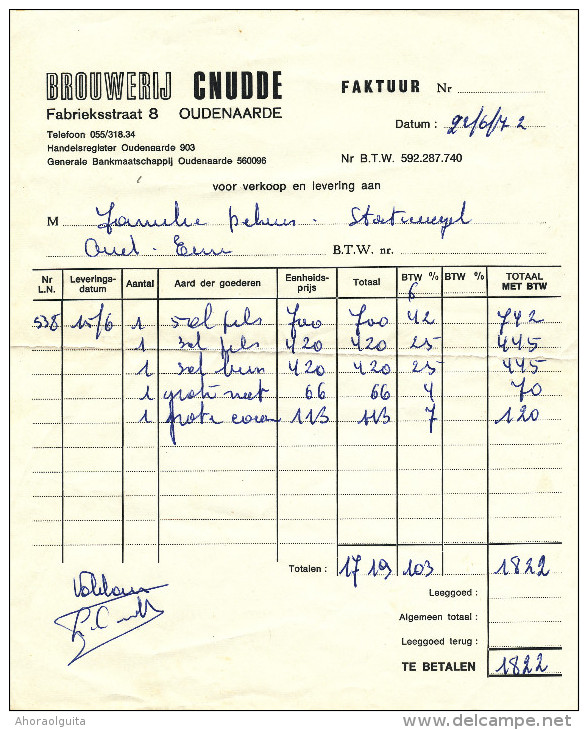 BROUWERIJ CNUDDE
FAKTUUR Nr
Fabrieksstraat 8 OUDENAARDE
Datum : 22/6/72
Telefoon 055/318.34
Handelsregister Oudenaarde 903
Generale Bankmaatschappij Oudenaarde 560096
Nr B.T.W. 592.287.740
voor verkoop en levering aan
M Familie
Oud B.T.W. nr.
Nr L.N. Leverings-datum Aantal Aard der goederen Eenheids-prijs Totaal BTW % 6 BTW % TOTAAL MET BTW
538 15/6 1 50l pils 700 700 42 742
1 3el pils 420 420 25 445
1 3el bruin 420 420 25 445
1 grote 66 66 4 70
1 grote 113 113 7 120
Totalen : 1719 103 1822
Voldaan
Leeggoed :
Algemeen totaal :
Leeggoed terug :
TE BETALEN 1822
Ahoraolguita
delcampe.net